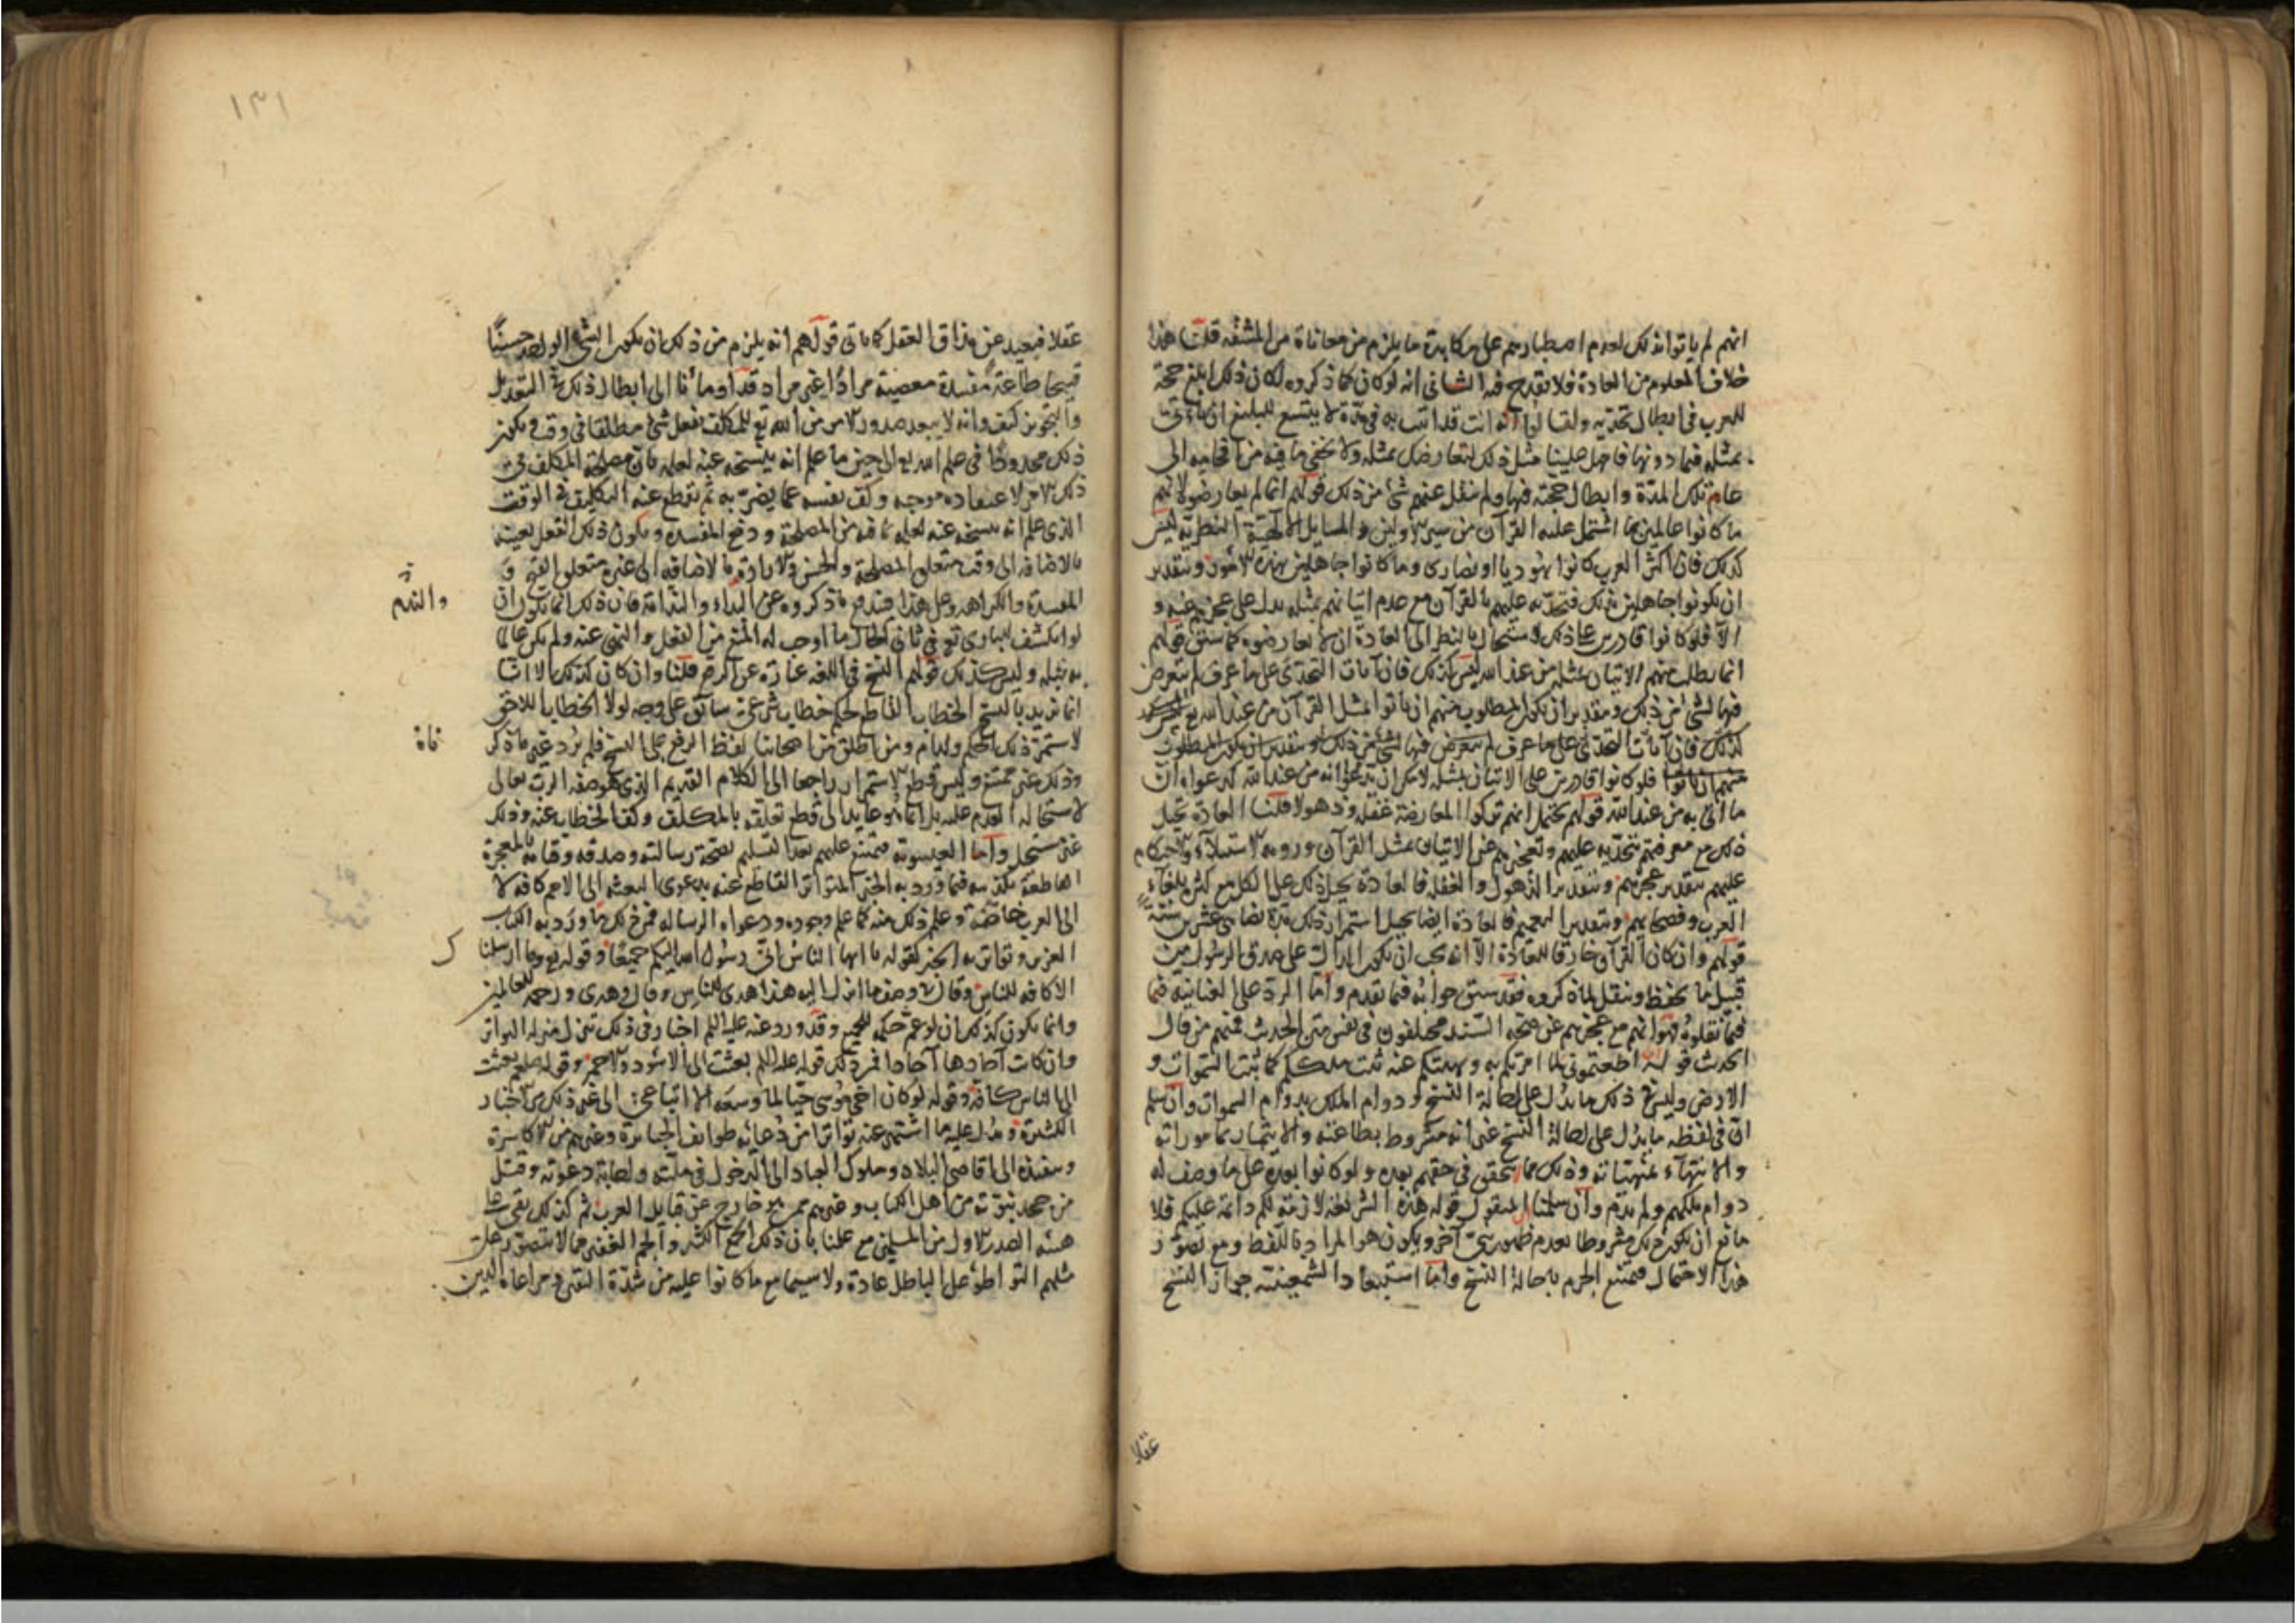 انهم لم ياتوا بذلك لعدم اصطبارهم على مكابدة ما يلزم من معاناة من المشقه قلنا هذا
خلاف المعلوم من العادة فلا يقدح فيه الثاني انه لو كان كما ذكروه لكان ذلك ابلغ حجة
للعرب في ابطال تحديه ولقالوا انه انت قد اتيت به في مدة لا يتسع للبليغ ان ياتي
بمثله فيما دونها فاجهل علينا مثل ذلك لتعارضك بمثله ولا يخفى ما فيه من افحامه الى
عام تلك المدة وابطال حجته فيها ولم ينقل عنهم شئ من ذلك قولهم انما لم يعارضوه لانهم
ما كانوا عالمين بما اشتمل عليه القرآن من سير الاولين والمسايل الالهية النظرية ليس
كذلك فان اكثر العرب كانوا يهوديا او نصارى وما كانوا جاهلين بهذه الامور وبتقدير
ان يكونوا جاهلين بذلك فتحديه عليهم بالقرآن مع عدم اتيانهم بمثله يدل على عجزهم عنه و
الا فلو كانوا قادرين على ذلك لاستحال بالنظر الى العادة ان لا يعارضوه كما سبق قولهم
انما يطلب منهم الاتيان بمثله من عند الله ليس كذلك فان آيات التحدى على ما عرف لم يتعرض
فيها لشئ من ذلك وبتقدير ان يكون المطلوب منهم ان ياتوا بمثل القرآن من عند الله تع
كذلك فان آيات التحدى على ما عرف لم يتعرض فيها لشئ من ذلك وبتقدير ان يكون المطلوب
منهم ان ياتوا فلو كانوا قادرين على الاتيان بمثله لامكن ان يدعوا انه من عند الله كدعواه ان
ما اتى به من عند الله قولهم يحتمل انهم تركوا المعارضة غفلة وذهولا قلنا العادة تحيل
ذلك مع معرفتهم بتحديه عليهم وتعجيزهم عن الاتيان بمثل القرآن ورومه الاستيلاء والاحتكام
عليهم بتقدير عجزهم وبتقدير الذهول والغفلة فالعادة تحيل ذلك على الكل مع كثرة بلغاء
العرب وفصحائهم وبتقدير التعميم فالعادة ايضا تحيل استمرار ذلك مدة نيف عشرين سنة
قولهم وان كان القرآن خارقا للعادة الا انه يجب ان يكون الدال على صدق الرسول من
قبيل ما يحفظ وينقل لما ذكروه فقد سبق جوابه فيما تقدم واما الرد على العنانية فيما
فيما نقلوه فهو انهم مع عجزهم عن صحة السند مختلفون في نفس متن الحديث فمنهم من قال
الحديث قوله ان اطعتموني لما امرتكم به ونهيتكم عنه ثبت ملككم كما ثبتت السموات و
الارض وليس في ذلك ما يدل على احالة النسخ ودوام الملك بدوام السموات وان سلم
ان في لفظه ما يدل على احالة النسخ غير انه مشروط بطاعته والايتمار بماموراته
والانتهاء بمنهياته وذلك مما لا يتحقق في حقهم بعده ولو كانوا بعده على ما وصف له
دوام ملكهم ولم يذم وان سلمنا ان المنقول قوله هذه الشريعة لازمة لكم دائمة عليكم فلا
مانع ان يكون ذلك مشروطا بعدم ظهور نبي آخر ويكون هو المراد باللفظ ومع تصور
هذا الاحتمال فيمتنع الجزم باحالة النسخ واما استبعاد الشمعينية جواز النسخ
عقلا
١٣١
عقلا فبعيد عن مذاق العقل كما ياتى قولهم انه يلزم من ذلك ان يكون الشئ الواحد حسنا
قبيحا طاعة معصية مرادا غير مراد قد اومأنا الى ابطال ذلك في التعديل
والتجوير كيف وانه لا يبعد صدور الامر من الله تع للمكلف بفعل شئ مطلقا في وقت ويكون
ذلك محدودا في علم الله تع الى حين ما علم انه ينسخه عنه لعلمه بان مصلحة المكلف في
ذلك الامر لاعتقاده موجبه وكف نفسه عما يضر به ثم يقطع عنه التكليف في الوقت
الذى علم انه ينسخه عنه لعلمه بما فيه من المصلحة ودفع المفسدة ويكون ذلك الفعل بعينه
بالاضافة الى وقت متعلق المصلحة والحسن والارادة وبالاضافة الى غيره متعلق القبح و
المفسدة والكراهة وعلى هذا فيندفع ما ذكروه عن البداء والندامة فان ذلك انما يكون ان
لو انكشف للباري تع في ثاني الحال ما اوجب له المنع من الفعل والنهى عنه ولم يكن عالما
به قبله وليس كذلك قولهم النسخ في اللغه عبارة عن الرفع قلنا وان كان كذلك الا انا
انما نريد بالنسخ الخطاب القاطع لحكم خطاب شرعى سابق على وجه لولا الخطاب اللاحق
لاستمر ذلك الحكم ولدام ومن اطلق من اصحابنا لفظ الرفع على النسخ فلم يرد غير ما ذكر
وذلك غير ممتنع وليس قطع الاستمرار راجعا الى الكلام القديم الذى هو صفة الرب تعالى
لاستحالة العدم عليه بل انما هو عايد الى قطع تعلقه بالمكلف وكف الخطاب عنه وذلك
غير مستحيل واما العيسوية فيمتنع عليهم بعد التسليم بصحة رسالته وصدقه وقيامه بالمعجزة
القاطعة تكذيبه فيما ورد به الخبر المتواتر القاطع عنه بدعوى البعثة الى الامم كافه لا
الى العرب خاصة وعلم ذلك منه كما علم وجوده ودعواه الرسالة فمن ذلك ما ورد به الكتاب
العزيز وتواتر به الخبر كقوله يا ايها الناس انى رسول الله اليكم جميعا وقوله تع وما ارسلناك
الا كافه للناس وقال في وصف ما انزل اليه هذا هدى للناس وقال وهدى ورحمة للعالمين
وانما يكون كذلك ان لو عم حكمه للجميع وقد ورد عنه عليه السلم اخبار في ذلك تتنزل منزلة التواتر
وان كانت آحادها آحادا فمن ذلك قوله عليه السلم بعثت الى الاسود والاحمر وقوله صلعم بعثت
الى الناس كافة وقوله لو كان اخي موسى حيا لما وسعه الا اتباعي الى غير ذلك من الاخبار
الكثيرة ويدل عليه ما اشتهر عنه تواترا من دعائه طوايف الجبابرة وغيرهم من الاكاسرة
وتنفيذه الى اقاصي البلاد وملوك العباد الى الدخول في ملته واجابة دعوته وقتل
من جحد بنبوته من اهل الكتاب وغيرهم ممن هو خارج عن قبايل العرب ثم كذلك بقي على
هذه الصدر الاول من المسلمين مع علمنا بان ذلك الجمع الكثير والجم الغفير مما لا يتصور على
مثلهم التواطؤ على الباطل عادة ولا سيما مع ما كانوا عليه من شدة التقى ومراعاة الدين
والندم